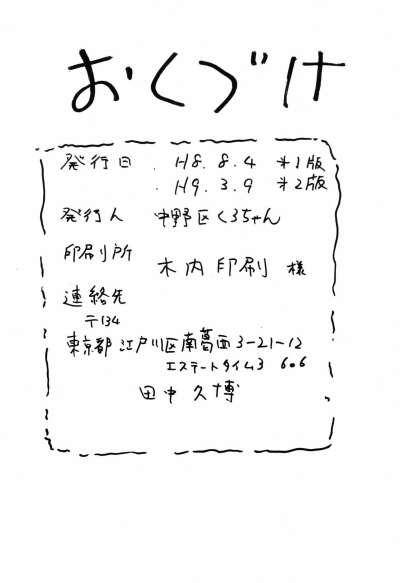 おくづけ
発行日 . H8. 8. 4 オ1版
. H9. 3. 9 オ2版
発行人 中野区くろちゃん
印刷所
木内印刷 様
連絡先
〒134
東京都江戸川区南葛西3-21-12
エステートタイム3 606
田中久博